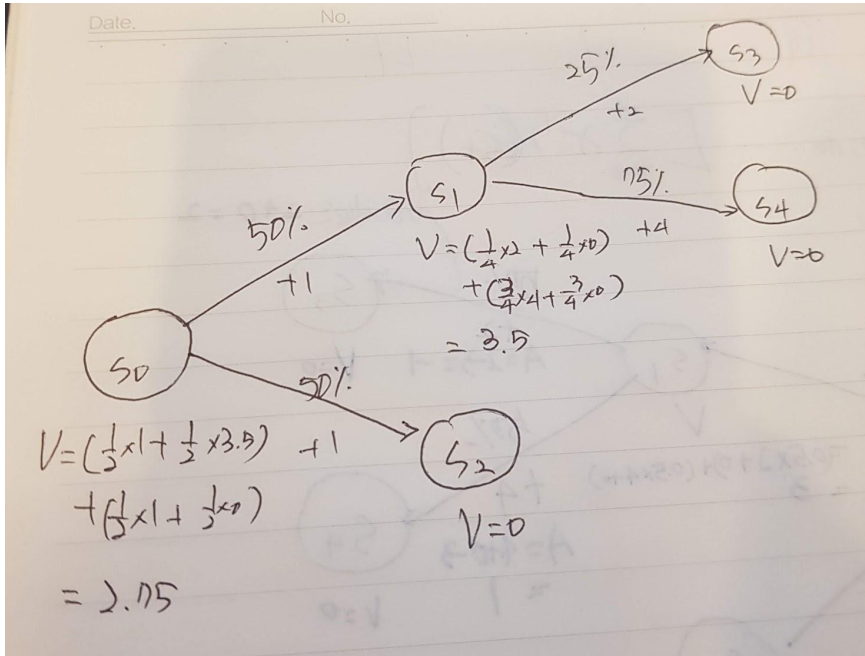 Date.
No.
S3
V=0
25%
+2
S1
75%
+4
S4
V=0
50%
+1
V=(1/4×2 + 1/4×0)
+(3/4×4+3/4×0)
= 3.5
S0
50%
+1
S2
V=0
V=(1/2×1+ 1/2×3.5)
+(1/2×1+ 1/2×0)
= 2.75